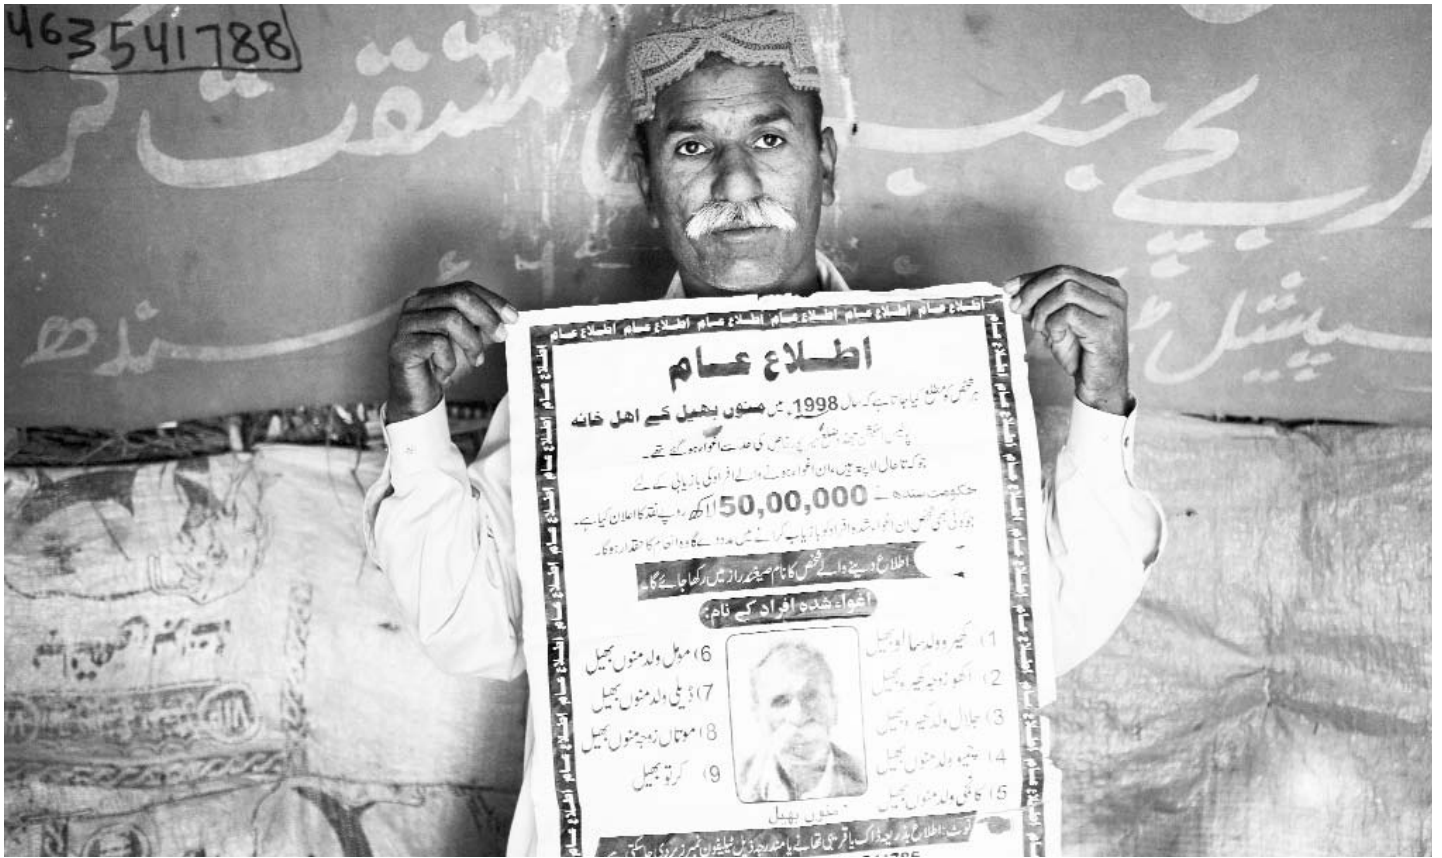 463541788
ار بچے جب مشقت کر
سپیشل
سندھ
اطلاع عام اطلاع عام اطلاع عام اطلاع عام اطلاع عام اطلاع عام
اطلاع عام
ہر شخص کو مطلع کیا جاتا ہے کہ سال 1998ء میں منوں بھیل کے اھل خانہ
پولیس اسٹیشن ضلع کی حد سے اغواء ہو گئے تھے۔
جو کہ تا حال لاپتہ ہیں، ان اغواء ہونے والے افراد کی بازیابی کے لئے
حکومت سندھ نے 50,00,000 لاکھ روپے نقد کا اعلان کیا ہے۔
جو کوئی بھی شخص ان اغواء شدہ افراد کو بازیاب کرانے میں مدد دے گا وہ انعام کا حقدار ہوگا۔
اطلاع دینے والے شخص کا نام صیغہ راز میں رکھا جائے گا۔
اغواء شدہ افراد کے نام:
1) کھیرو ولد بھیل
2) اکھو زوجہ کھیرو بھیل
3) جلال ولد کھیرو بھیل
4) چنیو ولد منوں بھیل
5) کانجی ولد منوں بھیل
6) مومل ولد منوں بھیل
7) ڈیلی ولد منوں بھیل
8) موتاں زوجہ منوں بھیل
9) کرتو بھیل
منوں بھیل
نوٹ: اطلاع بذریعہ ڈاک یا قریبی تھانے یا مندرجہ ذیل ٹیلیفون نمبرز پر دی جا سکتی ہے